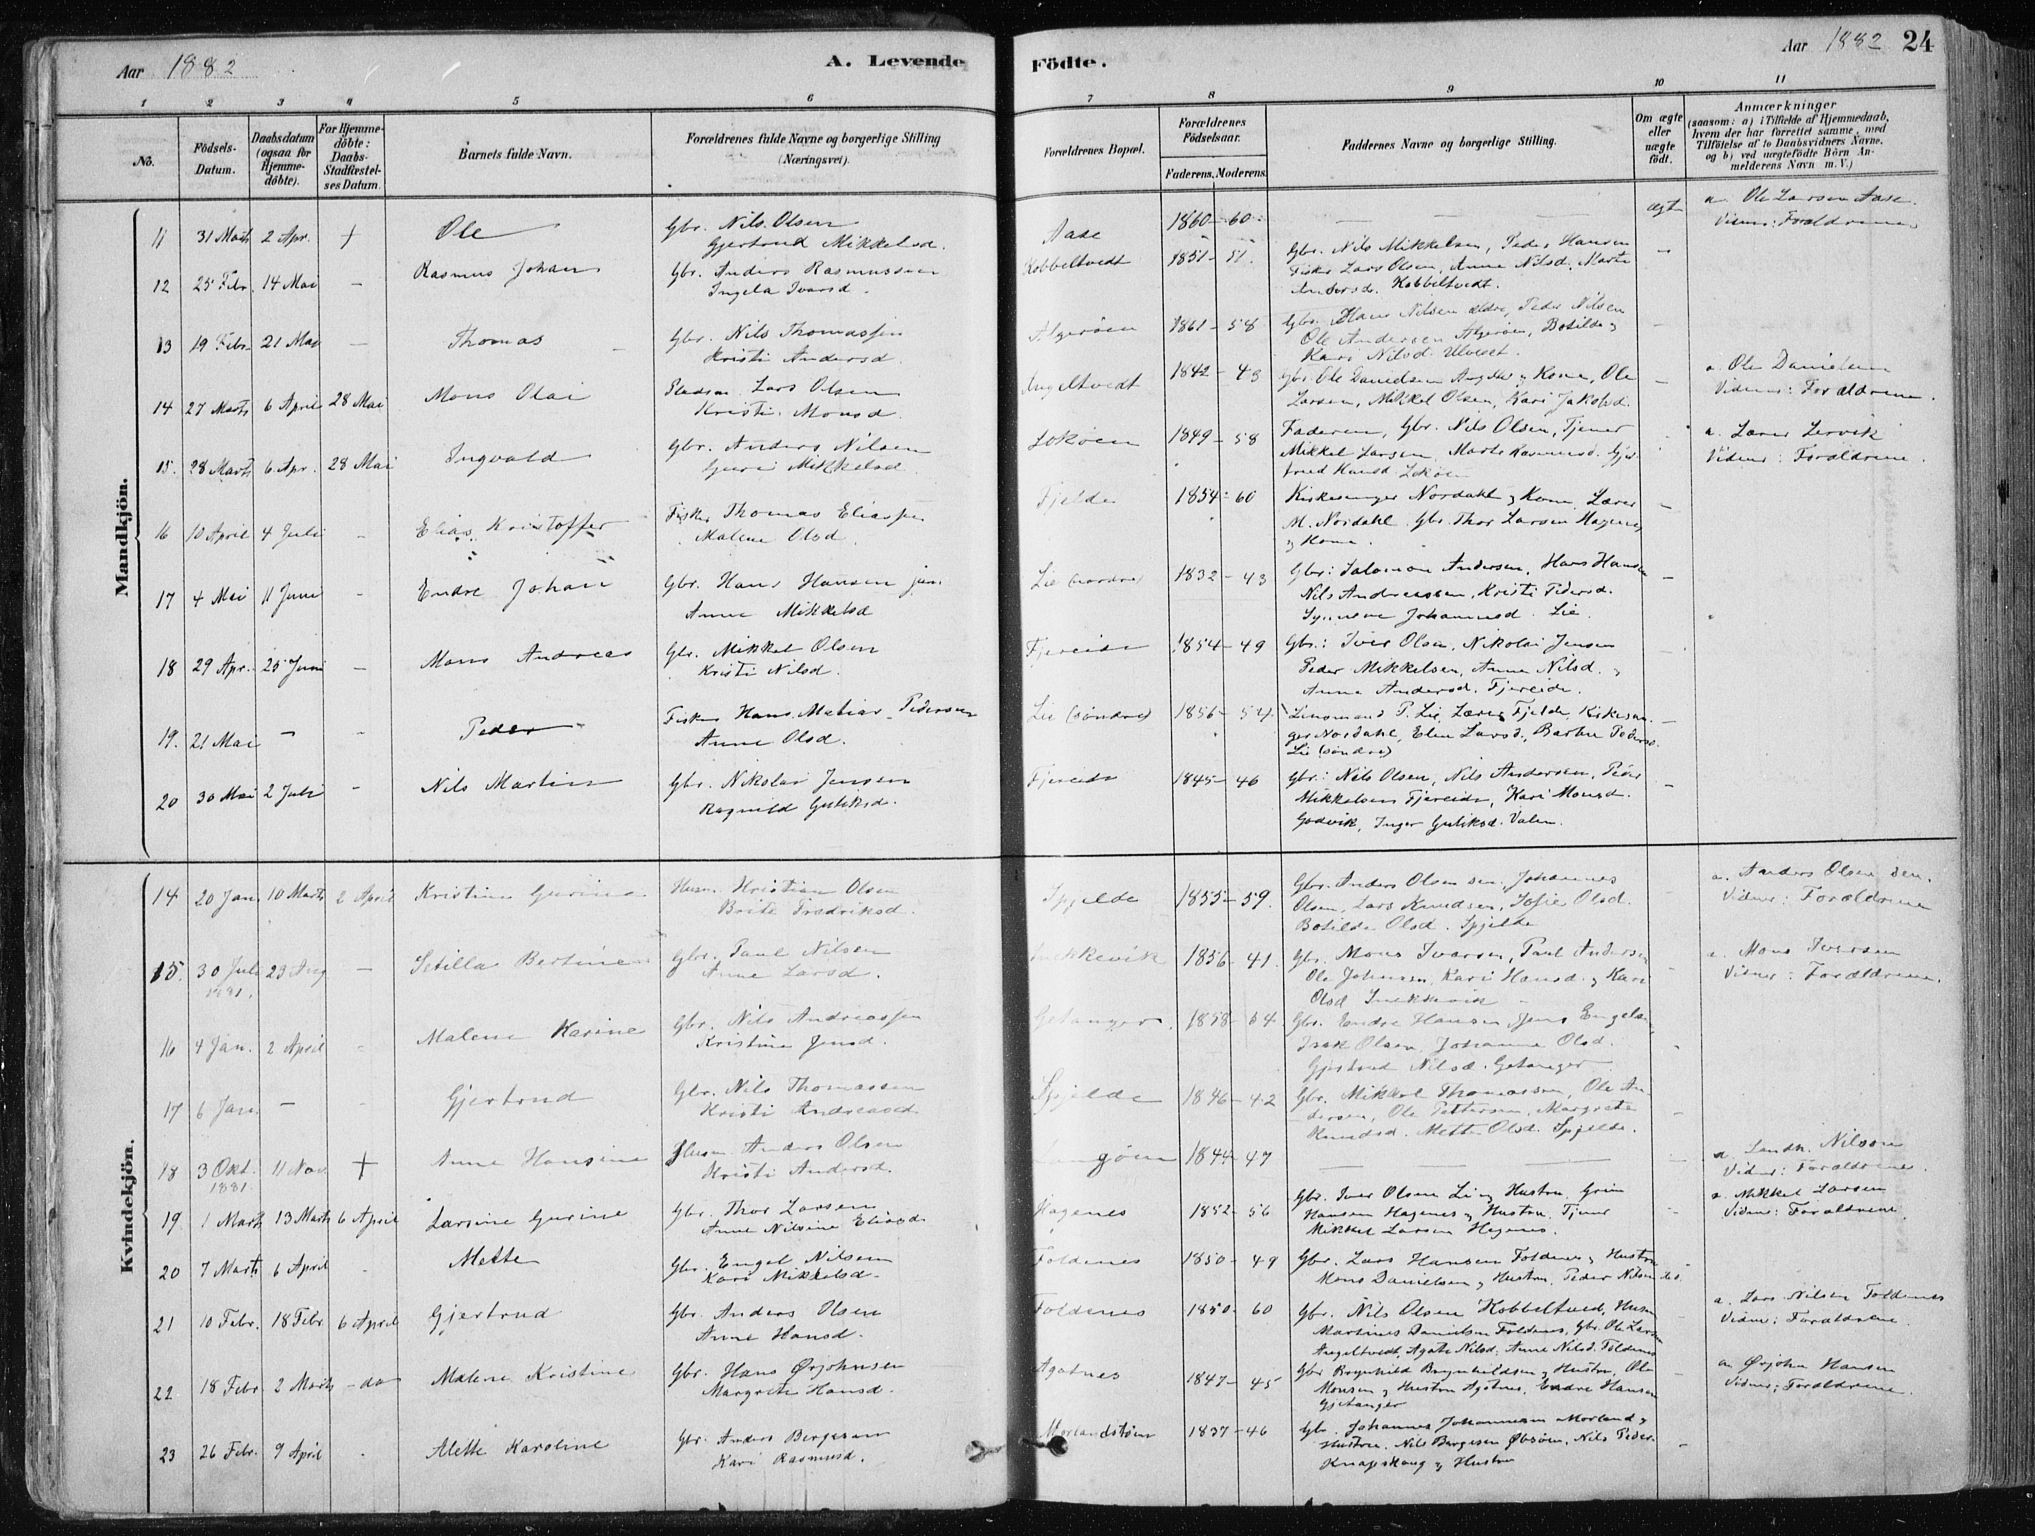 Aar 1882 A. Levende Födte. Aar 1882 24
1 2 3 4 5 6 7 8 9 10 11
No. Födsels-Datum. Daabsdatum (ogsaa for Hjemme-döbte). For Hjemme-döbte: Daabs-Stadfæstel-ses Datum. Barnets fulde Navn. Forældrenes fulde Navne og borgerlige Stilling (Næringsvei). Forældrenes Bopæl. Forældrenes Födselsaar. Faderens. Moderens. Faddernes Navne og borgerlige Stilling. Om ægte eller uægte födt. Anmærkninger (saasom: a) i Tilfælde af Hjemmedaab, hvem der har forrettet samme, med Tilföielse af to Daabsvidners Navne, og b) ved uægtefödte Börn An-melderens Navn m. V.)
Mandkjön.
11 31 Marts 2 Apr. + Ole Gbr. Nils Olsen Aase 1860 - 60 — — — ægte a. Ole Larsen Aase.
Gjertrud Mikkelsd. Vidner: Forældrene
12 25 Febr. 14 Mai - Rasmus Johan Gbr. Anders Rasmussen Kobbeltvedt 1851 - 51. Gbr. Nils Mikkelsen, Peder Hansen
Ingela Ivarsd. Fisker Lars Olsen, Anne Nilsd. Marte
Andersd. Kobbeltvedt.
13 19 Febr. 21 Mai - Thomas Gbr. Nils Thomassen Algeröen 1861 - 58 Gbr. Hans Nilsen ældre, Peder Nilsen
Kristi Andersd. Ole Andersen Algeröen, Botilde &
Kari Nilsd. Ulveset.
14 27 Marts 6 April 28 Mai Mons Olai Pladsm. Lars Olsen Angeltvedt 1842 - 43 Gbr. Ole Danielsen Angeltv. & Kone, Ole - a. Ole Danielsen
Kristi Monsd. Larsen, Mikkel Olsen, Kari Jakobsd. Vidner: Forældrene.
15. 28 Marts 6 Apr. 28 Mai Ingvald Gbr. Anders Nilsen Loköen 1849 - 58 Faderen, Gbr. Nils Olsen, Tjener a. Lærer Lervik
Guri Mikkelsd. Mikkel Larsen, Marte Rasmusd. Gjer- Vidner: Forældrene.
trud Hansd. Loköen
16 10 April 4 Juli - Elias Kristoffer Fisker Thomas Eliassen Fjelde 1854 - 60 Kirkesanger Nordahl & Kone, Lærer -
Malene Olsd. M. Nordahl. Gbr. Thor Larsen Hagenes
& Kone.
17 4 Mai 11 Juni - Endre Johan Gbr. Hans Hansen jun. Lie (nordre) 1832 - 43 Gbr: Salomon Andersen, Hans Hansen -
Anne Mikkelsd Nils Andreassen, Kristi Pedersd.
Synneve Johannesd. Lie.
18 29 Apr. 25 Juni - Mons Andreas Gbr. Mikkel Olsen Fjereide 1854 - 49 Gbr: Iver Olsen, Nikolai Jensen
Kristi Nilsd. Peder Mikkelsen, Anne Nilsd. &
Anne Andersd. Fjereide.
19. 21 Mai - - Peder Fisker Hans Matias Pedersen Lie (söndre) 1856 - 54. Lensmand P. Lie, Lærer Fjelde, Kirkesan- -
Anne Olsd. ger Nordahl, Elen Larsd., Barbra Pedersd.
Lie (söndre)
20 30 Mai 2 Juli - Nils Martin Gbr. Nikolai Jensen Fjereide 1845 - 46 Gbr: Nils Olsen, Nils Andersen, Peder -
Ragnild Guliksd. Mikkelsen Fjereide, Kari Monsd.
Godvik, Inger Guliksd. Valen.
Kvindekjön.
14 20 Jan. 10 Marts 2 April Kristine Gurine Husm. Kristian Olsen Spjelde 1855 - 59. Gbr. Anders Olsen sen. Johannes a. Anders Olsen sen.
Brite Fredriksd. Olsen, Lars Knudsen, Sofie Olsd. Vidner: Forældrene
Botilde Olsd. Spjelde
15. 30 Juli 23 Aug - Sitilla Bertine Gbr. Paul Nilsen 1856 - 41. Gbr. Mons Ivarsen, Paul Anders- a. Mons Iversen
1881. Anne Larsd. Ole Johnsen, Kari Hansd. & Kari Vidner: Forældrene.
Olsd
16 4 Jan. 2 April - Malene Karine Gbr. Nils Andreassen Getanger 1858 - 54 Gbr. Endre Hansen, Jens Engels.
Kristine Jensd. Isak Olsen, Johanne Olsd.
Gjertrud Nilsd. Getanger
17 6 Jan. - - Gjertrud Gbr. Nils Thomassen Spjelde 1846 - 42 Gbr. Mikkel Thomassen, Ole An-
Kristi Andreasd. dersen, Ole Pettersen, Margrete
Knudsd. Mette Olsd. Spjelde.
18 3 Okt. 11 Nov. + Anne Hansine Husm. Anders Olsen Langöen 1844 - 47 — — a. Landh. Nilsen
1881. Kristi Andersd. Vidner: Forældrene.
19. 1 Marts 13 Marts 6 April Larsine Gurine Gbr. Thor Larsen Hagenes 1852 - 56 Gbr. Iver Olsen Li & Hustru, Grim a. Mikkel Larsen
Anne Nilsine Eliasd. Hansen Hagenes & Hustru. Tjener Vidner: Forældrene.
Mikkel Larsen Hagenes.
20 7 Marts 6 April - Mette Gbr. Engel Nilsen Foldenes 1850 - 49 Gbr. Lars Hansen Foldenes & Hustru
Kari Mikkelsd. Mons Danielsen & Hustru, Peder Nilsen ds.
21 10 Febr. 18 Febr 6 April Gjertrud Gbr. Anders Olsen Foldenes 1850 - 60 Gbr. Nils Olsen Kobbeltved, Husm a. Lars Nilsen Foldenes
Anne Hansd. Martines Danielsen Foldenes, Gbr. Ole Larsen Vidner: Forældrene.
Angeltvedt, Agate Nilsd. Anne Nilsd. Foldenes
22 18 Febr 2 Marts - do Malene Kristine Gbr. Hans Ørjohnsen Agotnes 1847 - 45 Gbr Brynhild Brynhildsen & Hustru, Ole - a. Ørjohn Hansen
Margrete Hansd. Monsen & Hustru Agotnes, Endre Hansen Vidner: Forældrene.
Gjetanger
23 26 Febr. 9 April - Alette Karoline Gbr. Anders Bergesen Morlandstöen 1837 - 46 Gbr. Johannes Johannesen Morland &
Kari Rasmusd. Hustru. Nils Bergesen Øbsöen, Nils Peder- -
Knapskoug & Hustru